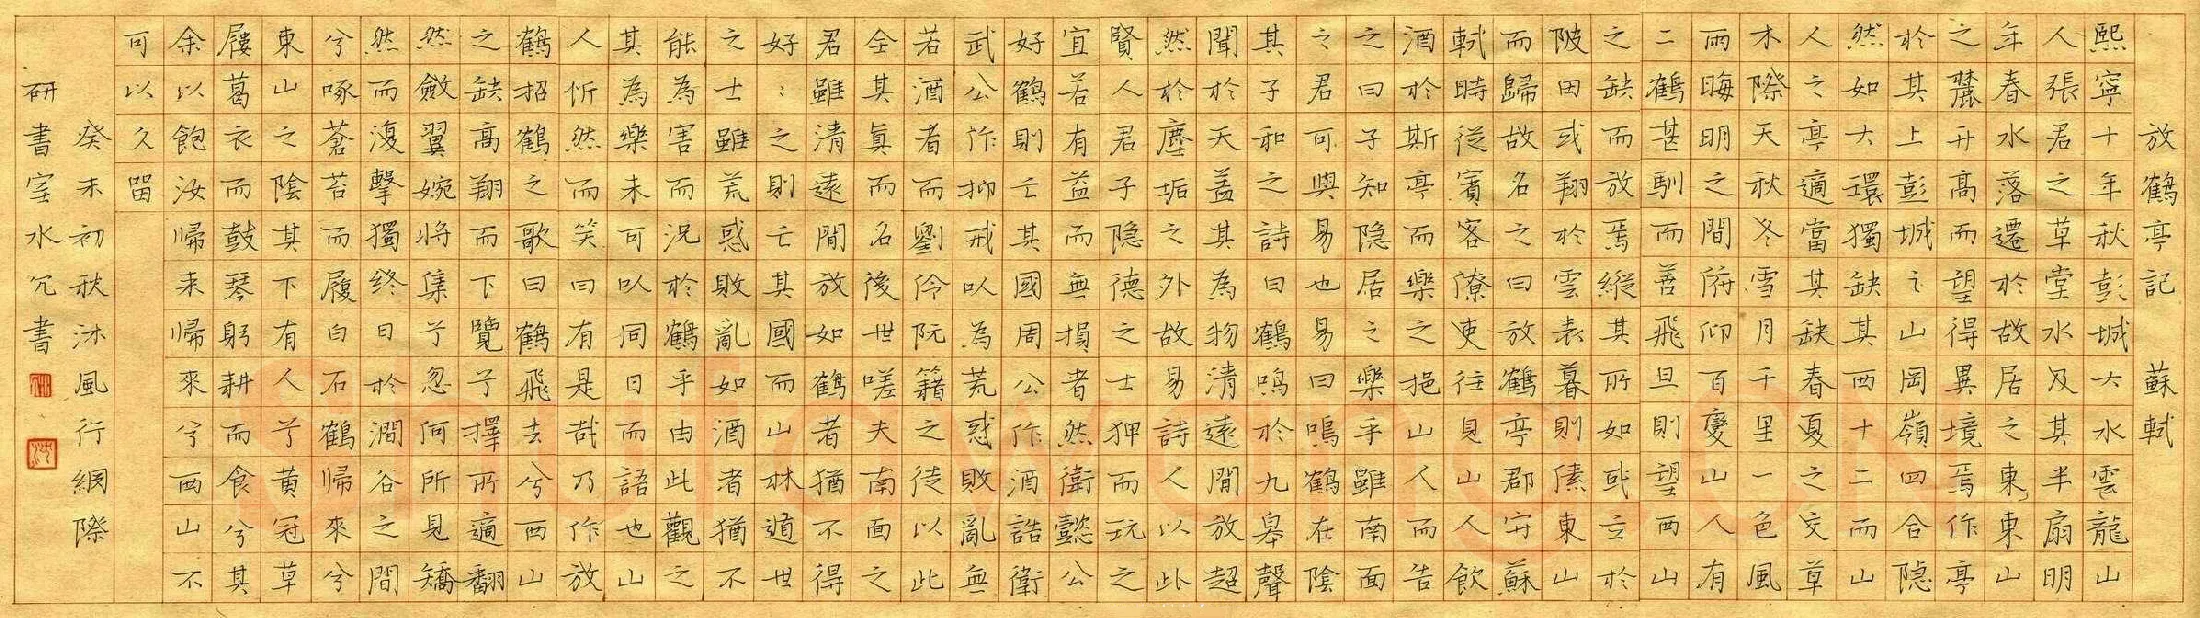 放鶴亭記 蘇軾
熙寧十年秋彭城大水雲龍山
人張君之草堂水及其半扇明
年春水落遷於故居之東東山
之麓升高而望得異境焉作亭
於其上彭城之山岡嶺四合隱
然如大環獨缺其西十二而山
人之亭適當其缺春夏之交草
木際天秋冬雪月千里一色風
雨晦明之間俯仰百變山人有
二鶴甚馴而善飛旦則望西山
之缺而放焉縱其所如或立於
陂田或翔於雲表暮則傃東山
而歸故名之曰放鶴亭郡守蘇
軾時從賓客僚吏往見山人飲
酒於斯亭而樂之挹山人而告
之曰子知隱居之樂乎雖南面
之君可與易也易曰鳴鶴在陰
其子和之詩曰鶴鳴於九皋聲
聞於天蓋其為物清遠閒放超
然於塵垢之外故易詩人以此
賢人君子隱德之士狎而玩之
宜若有益而無損者然衛懿公
好鶴則亡其國周公作酒誥衛
武公作抑戒以為荒惑敗亂無
若酒者而劉伶阮籍之徒以此
全其真而名後世嗟夫南面之
君雖清遠閒放如鶴者猶不得
好:之則亡其國而山林遁世
之士雖荒惑敗亂如酒者猶不
能為害而況於鶴乎由此觀之
其為樂未可以同日而語也山
人忻然而笑曰有是哉乃作放
鶴招鶴之歌曰鶴飛去兮西山
之缺高翔而下覽兮擇所適翻
然斂翼婉將集兮忽何所見矯
然而復擊獨終日於澗谷之間
兮啄蒼苔而履白石鶴歸來兮
東山之陰其下有人兮黃冠草
屨葛衣而鼓琴躬耕而食兮其
余以飽汝歸來歸來兮西山不
可以久留
癸未初秋沐風行網際
研書室水冗書